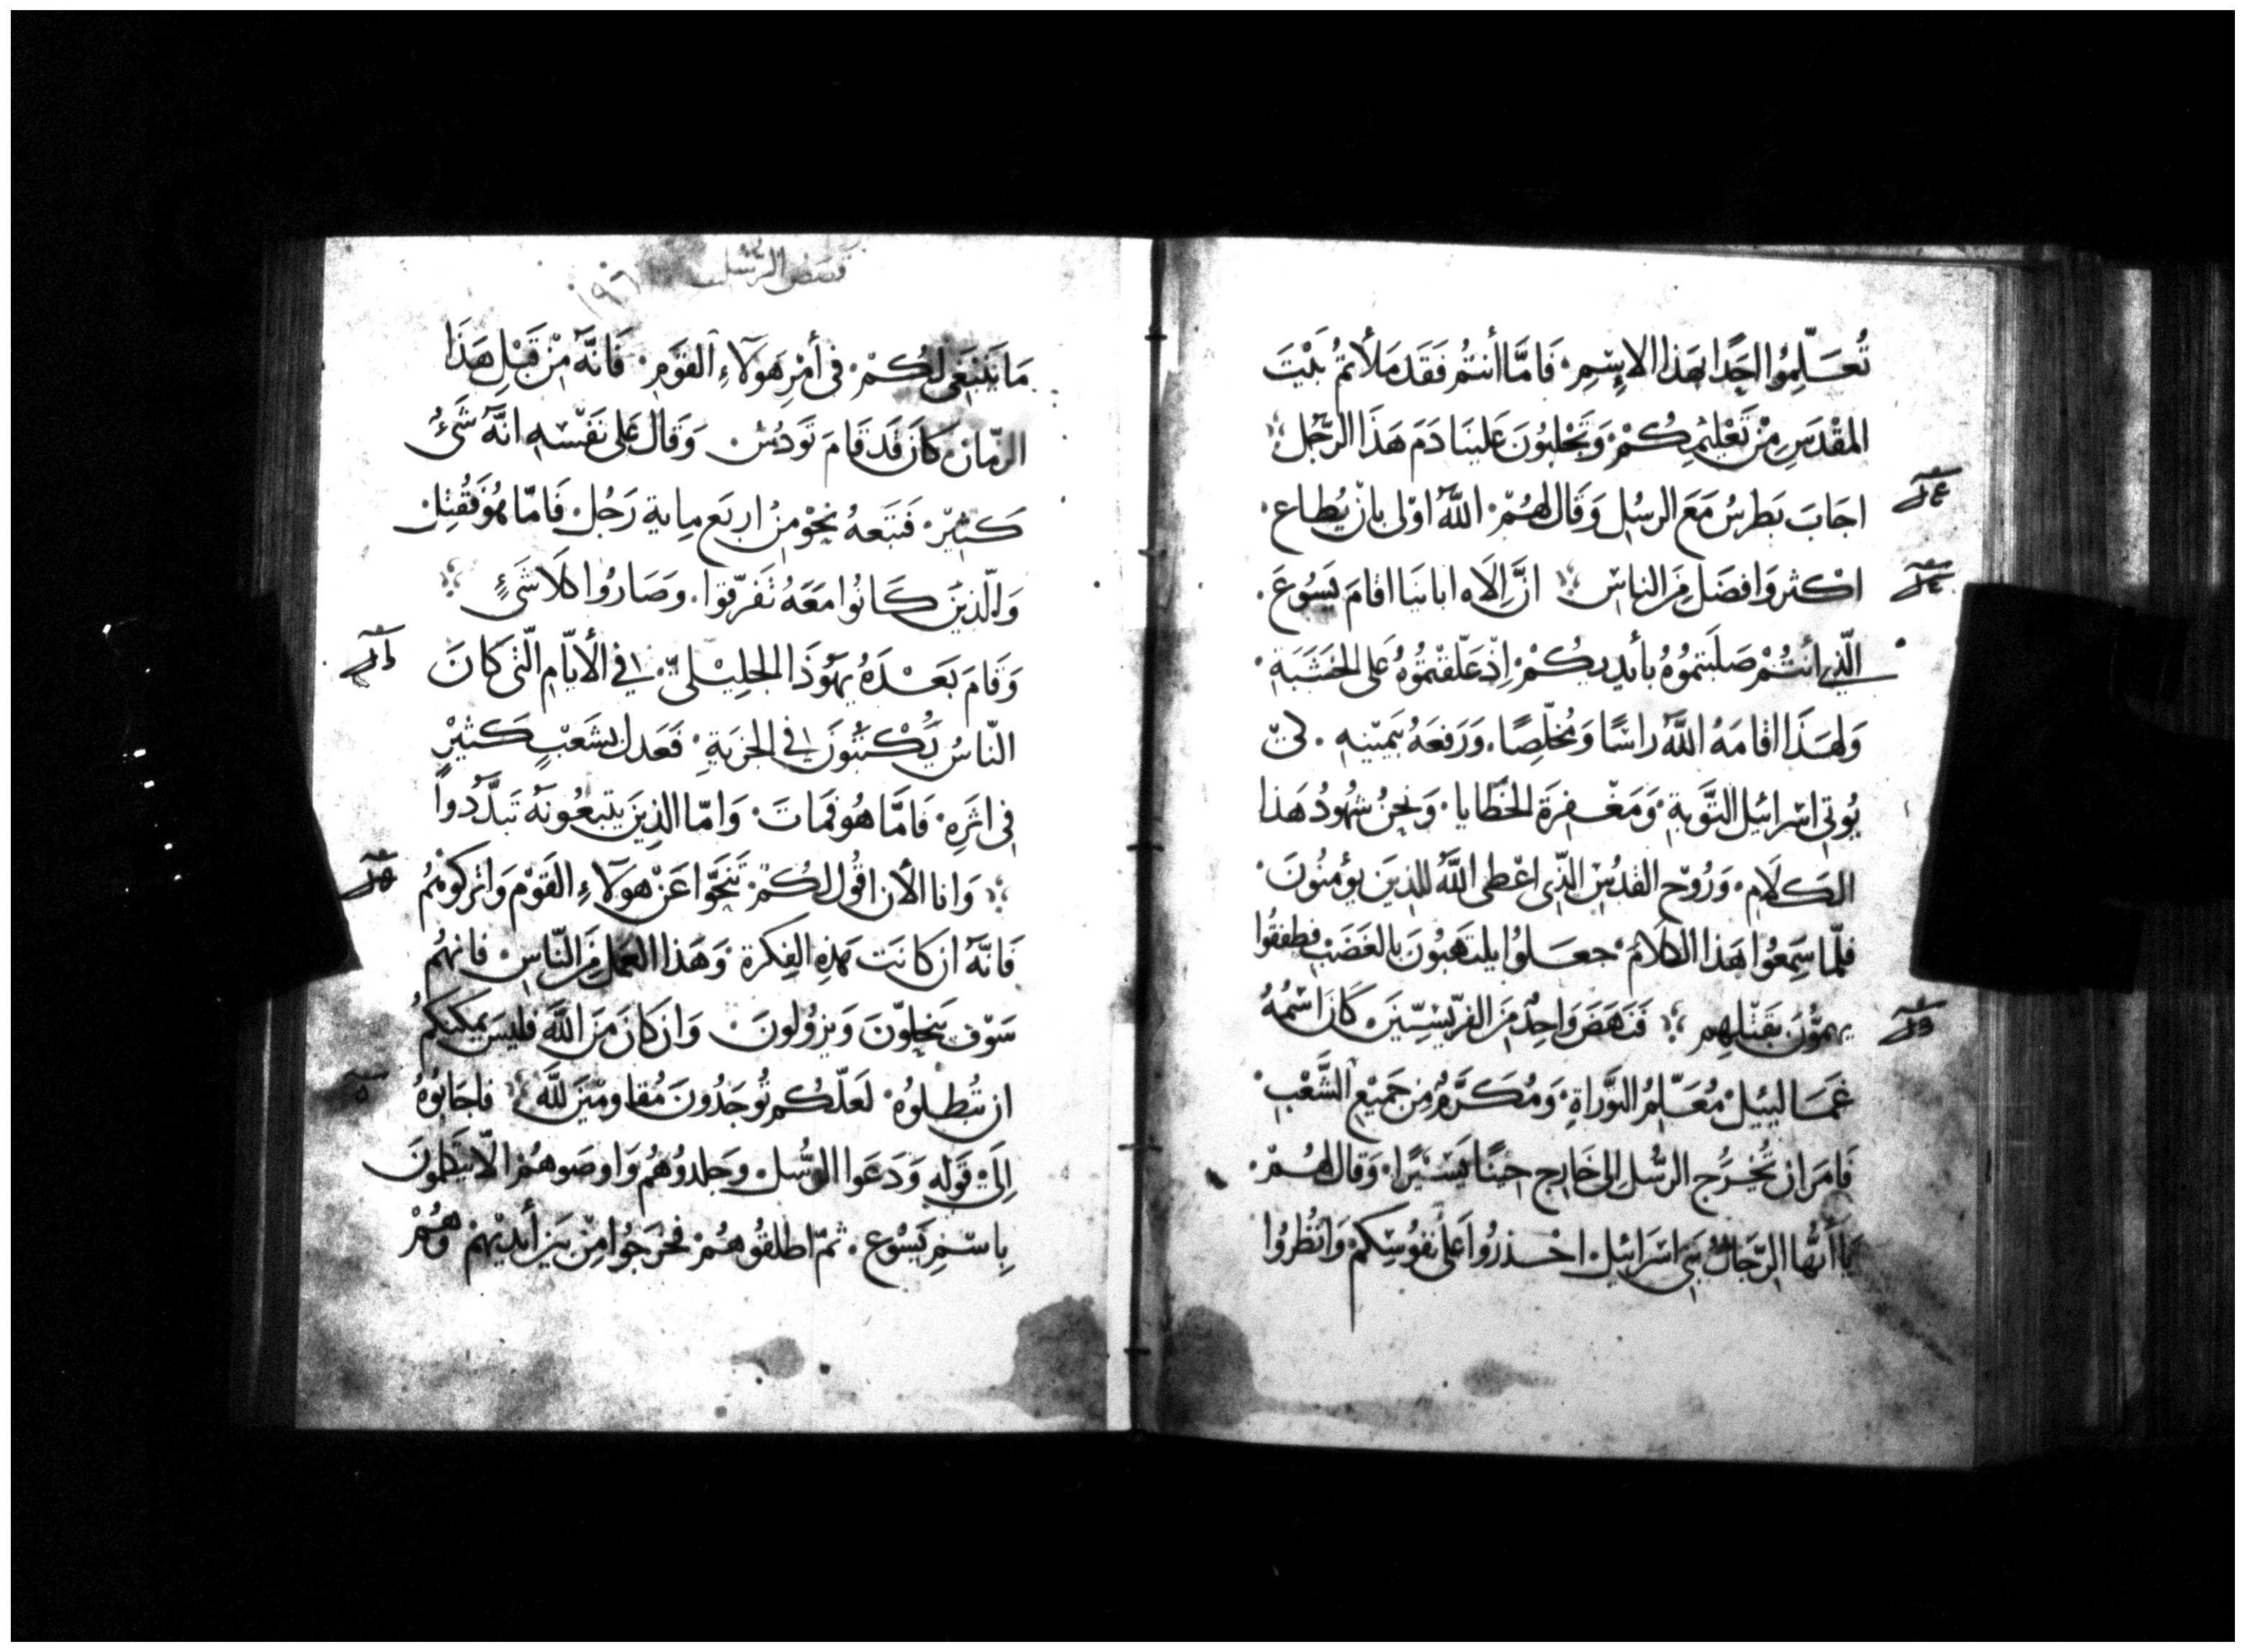 تُعَلِّمُوا احَدًا بهَذا الاسْمِ. فَامَّا أنتُم فَقَد مَلأتمُ بَيْتَ
المقْدَسِ مِنْ تَعْليْمِكُمْ وَتَجْلِبُونَ عَلينَا دَمَ هَذَا الرّجُل
اجَابَ بَطرسُ مَعَ الرسُلِ وَقَال لهُمْ. اللَّه اوْلى بان يُطاع.
اكْثر وَافضَل مِنَ الناسِ انَّ الَاه ابانَيَا اقامَ يَسُوعَ.
الّذِي أنتُمْ صَلَبتمُوُهُ بأيديكُمْ. اِذ عَلّقتمُوُهُ عَلى الخشَبَةِ.
وَلهَذَا اقَامَهُ اللَّه رَاسًا وَمُخلّصًا. وَرَفعَهُ بيَميْنِهِ. لكيْ
يُوتي اسْرائيل التّوَبةِ. وَمَغْفِرَة الخطَايا. وَنحنُ شهُودُ هَذا
الكَلَامِ. وَرُوْح القدُسِ الذّي اعْطى اللَّه للذينَ يؤمنُونَ.
فلمّا سَمِعُوا هَذا الكلامَ. جعَلوُا يلتهَبوُنَ بالغَضَبِ فطفقُوا
يهمّوُنَ بقَتْلِهِم فَنَهَضَ وَاحِدٌ مِنَ الفرّيْسيّيْنَ كَانَ اسْمُهُ
غمَالييْل مُعَلّمُ التوَّراةِ. وَمُكَرَّمٌ مِن جَميْعِ الشَّعْبِ.
فَامَرَ ان تُخْرَج الرسُّل الى خَارِج حِيْنًا يَسْيْرًا. وَقال لهُمْ.
يَا أيّها الرّجَالُ بَني اسْرَائيل احْذرُوا عَلى نفوُسِكمْ وَانظُروُا
قصَص الرّسُل
١٩٦
مَا يَنبَغي لكُمْ. في أمْرِ هَوَلَاءِ القوَمِ. فَانهَّ مِنْ قَبْلِ هَذَا
الزمّان كَانَ قَد قَامَ تَوَدُسْ وَقَال عَلى نَفْسِه انَّه شَئُ
كَثيْر. فَتبَعهُ نحْوَ مِنْ اربَع مِاية رَجُل. فَامّا هُوَ فَقُتِلَ
وَالّذِينَ كَانُوا مَعَهُ تَفَرّقوا. وَصَارُوا كَلَا شَئٍ
وَقَامَ بَعْدَهُ يهَوُذَا الجَلِيْلىّ. في الأيّامِ الّتي كَانَ
النّاسُ يَكْتَتبُونَ في الجزيَةِ. فَعَدل بشَعْبٍ كَثيْرٍ
في اثرَهِ. فَامَّا هُو فمَاتَ. وَامّا الذِينَ يتبعُونهُ تَبَدَّدُواً
وَانا الأن اقُول لكُمْ. تَنَحَّوا عَنْ هَولَاءِ القَوْم وَاترُكوُهمُ
فَانَّه ان كانَت هَذِهِ الفِكرة. وَهَذا العَمل مِنَ النّاسِ. فانهُم
سَوْف يَنحلوّنَ وَيزوُلونَ. وَان كانَ مِنَ اللَّه فليسَ يمكنكمُ
ان تبُطِلوُه. لَعَلّكُم تُوجَدُونَ مُقاومْيَن للَّه فاجَابُوُهُ
اِلىَ قَوله وَدَعَوا الرسُّل وجَلدوُهُم وَاوصَوهُمْ الّا يتكلموُنَ
بِاسْمِ يَسُوعِ. ثمّ اطلقُوهُمْ. فخرَجُوا مِنْ بيَن أيديْهمْ وَهُمْ